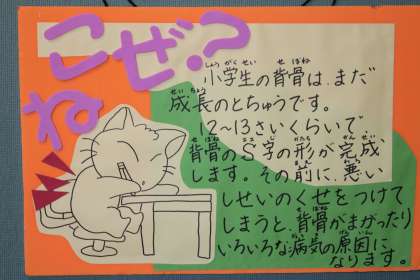 ねこぜ?
小学生の背骨は、まだ
成長のとちゅうです。
12~13さいくらいで
背骨のS字の形が完成
します。その前に、悪い
しせいのくせをつけて
しまうと、背骨がまがったり
いろいろな病気の原因に
なります。